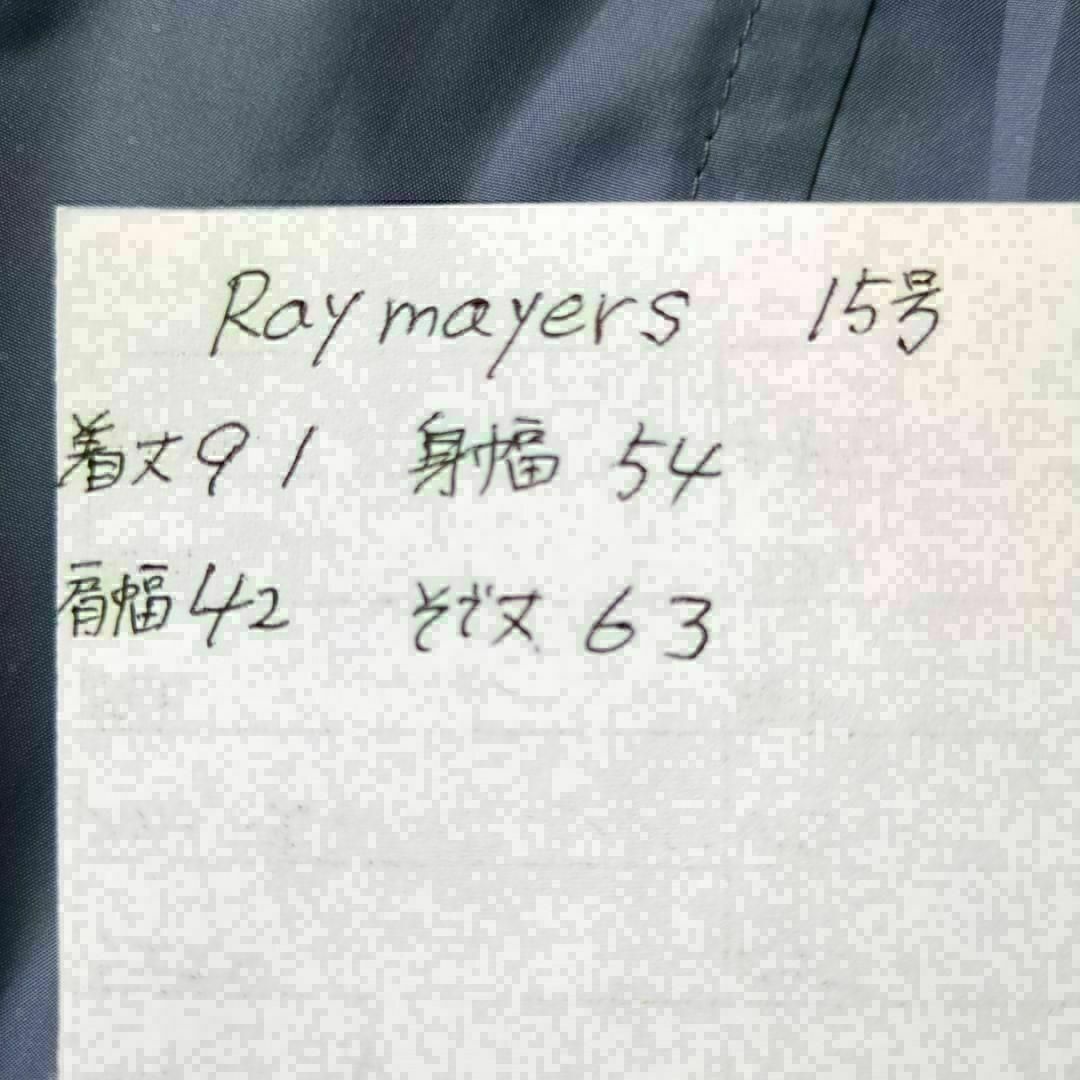 Ray mayers 15号
着丈91 身幅 54
肩幅42 そで丈 63